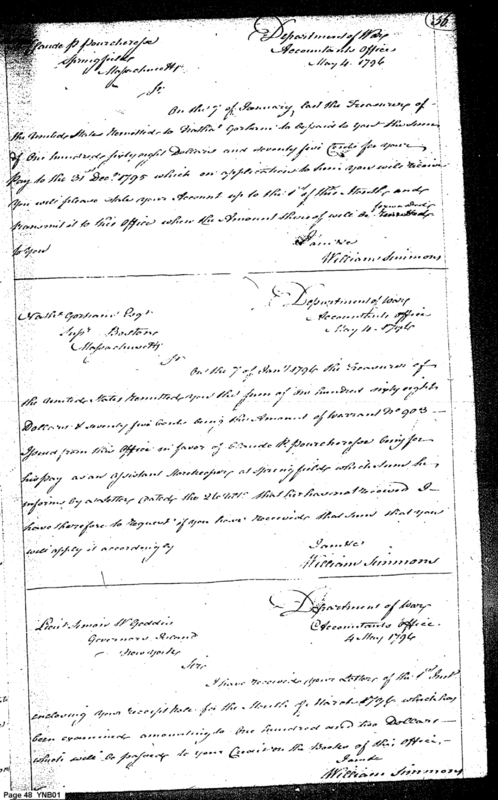 36
Claude P
Springfield
Massachusetts
Department of War
Accountants Office
May 4. 1796
Sr
On the 7th of January last the Treasurer of
the United States remitted to Nathl Gorham to be paid to you the sum
of One hundred sixty eight Dollars and seventy five Cents for your
Pay to the 31st Decr 1795 which on application to him you will receive
You will please state your Account up to the 1st of this Month and
transmit it to this Office when the Amount thereof will be forwarded
to you
I am &c
William Simmons
Nathl Gorham Esqr
Supr Boston
Massachusetts
Department of War
Accountants Office
May 4. 1796
Sr
On the 7th of Jany 1796 the Treasurer of
the United States remitted you the sum of one hundred sixty eight
Dollars & seventy five Cents being the Amount of Warrant No 903
Issued from this Office in favor of Claude P being for
his pay as an assistant Storekeeper at Springfield which sum he
informs by a letter dated the 26 Ulto that he has not received I
have therefore to request if you have received that sum that you
will apply it accordingly
I am &c
William Simmons
Lieut Simon W Geddis
Governors Island
New York
Department of War
Accountants Office
4 May 1796
Sir
I have received your Letter of the 1st Inst
enclosing your receipt Role for the Month of March 1796 which has
been examined amounting to One hundred and two Dollars
which will be passed to your Credit on the Books of this Office.
I am &c
William Simmons
Page 48 YNB01